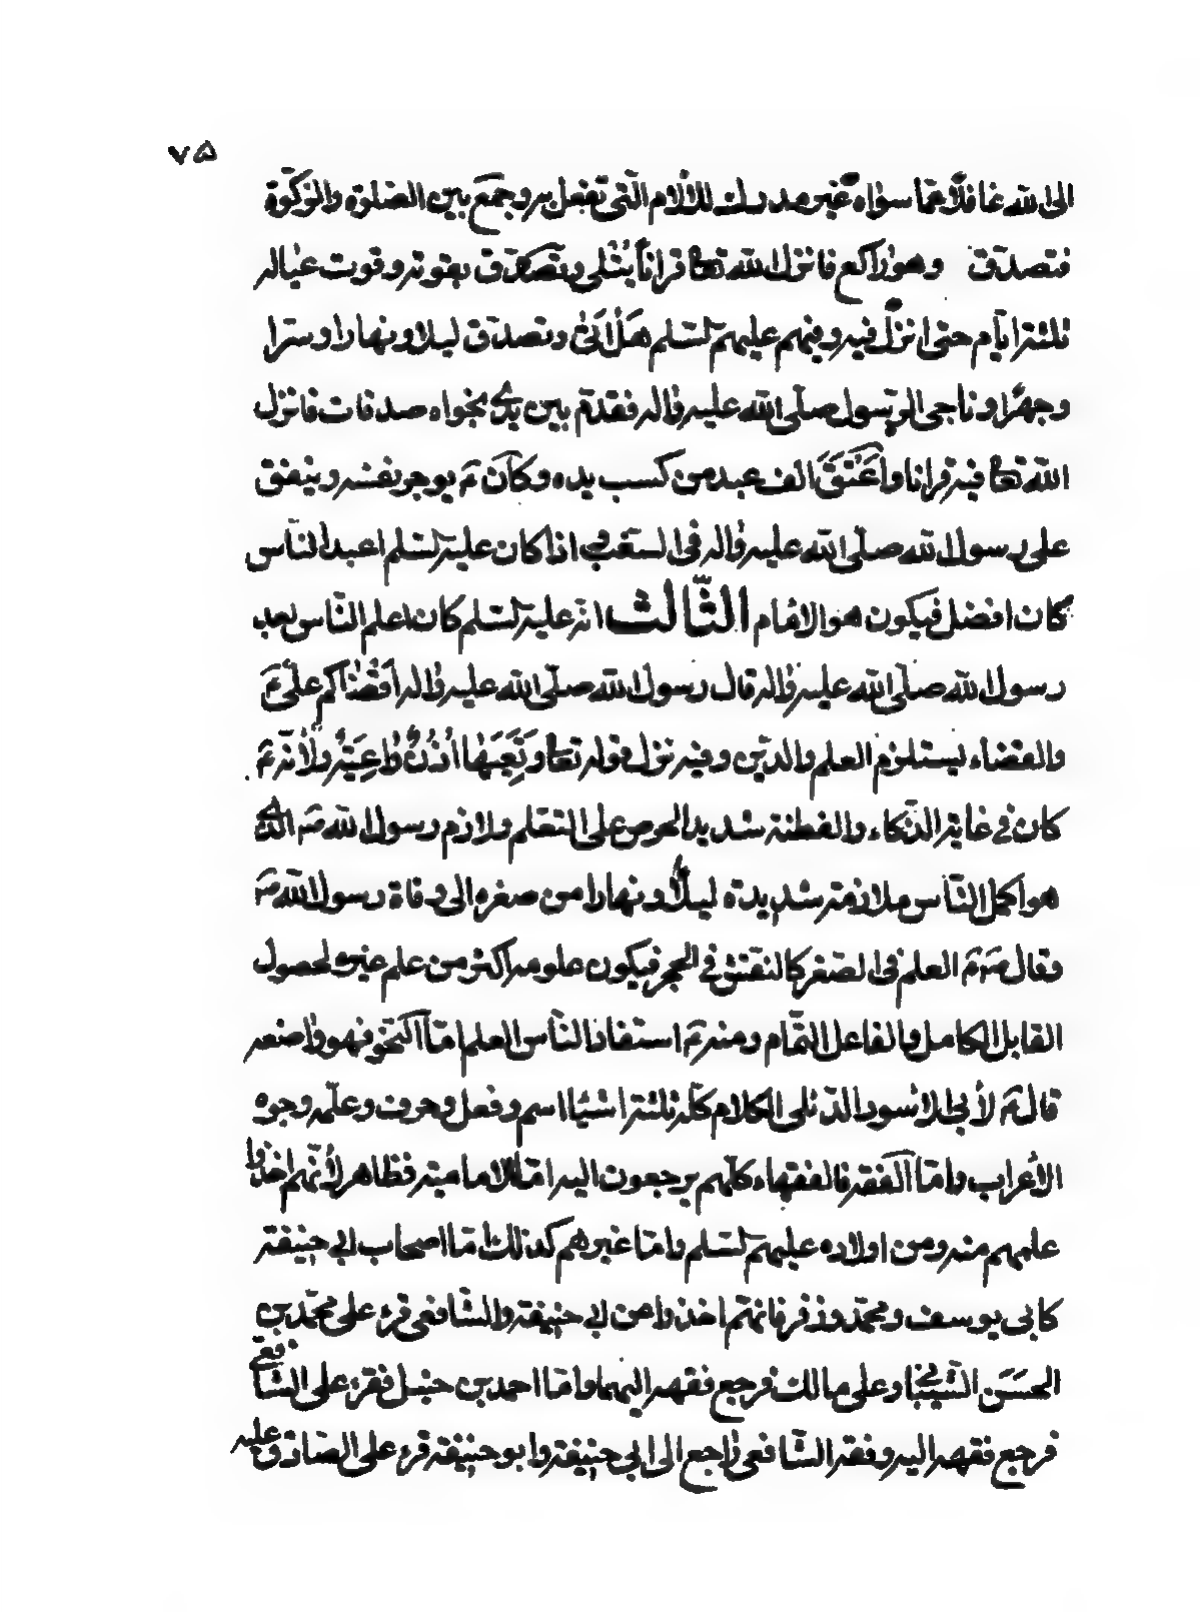 ٧۵
الى الله غافلًا عمّا سواه غير مدرك للآلام الّتي تفعل به وجمع بين الصّلوة والزّكوة
فتصدّق وهو راكع فانزل الله تعا قرانًا يُتلى وتصدّق بقوته وقوت عياله
ثلثة ايّام حتى انزل فيه وفيهم عليهم السّلم هَل اَتىٰ وتصدّق ليلا ونهارا وسرا
وجهرًا وناجى الرّسول صلّى الله عليه واله فقدّم بين يدى نجواه صدقات فانزل
الله تعا فيه قرانا واَعْتَقَ الف عبد من كسب يده وكان ع يوجر نفسه وينفق
على رسول الله صلّى الله عليه واله فى الشعب اذا كان عليه السّلم اعبد النّاس
كان افضل فيكون هو الامام الثّالث انّه عليه السّلم كان اعلم النّاس بعد
رسول الله صلّى الله عليه واله قال رسول الله صلّى الله عليه واله اَقْضٰاكم علىّ ع
والقضاء يستلزم العلم والدّين وفيه نزل قوله تعا وَتَعِيَهٰا اُذُنٌ وٰاعِيَةٌ ولأنّه ع
كان فى غاية الذّكاء والفطنة شديد الحرص على التعلم ولازم رسول الله ص الّذى
هو اكمل النّاس ملازمة شديدة ليلًا ونهارا من صغره الى وفاة رسول الله ص
وقال ص ع العلم فى الصّغر كالنقش فى الحجر فيكون علومه اكثر من علم غيره لحصول
القابل الكامل والفاعل التّام ومنه ع استفاد النّاس العلم امّا النّحو فهو واضعه
قال ع لأبى الاسود الدّئلى الكلام كلّه ثلثة اشيا اسم وفعل وحرف وعلّمه وجوه
الأعراب وامّا الفقه فالفقهاء كلّهم يرجعون اليه امّا الاماميّة فظاهر لأنّهم اخذوا
علمهم منه ومن اولاده عليهم السّلم وامّا غيرهم كذلك امّا اصحاب ابى حنيفة
كابى يوسف ومحمّد وزفر فانهم اخذوا عن ابى حنيفة والشّافعى قرء على محمّد بن
الحسَن الشّيبانى وعلى مالك فرجع فقهه اليهما وامّا احمد بن حنبل فقرء على الشّافعى
فرجع فقهه اليه وفقه الشّافعى راجع الى ابى حنيفة وابو حنيفة قرء على الصّادق عليه